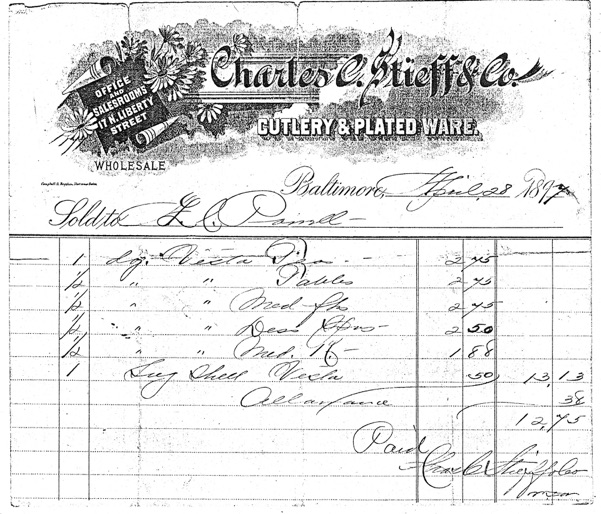 Charles C. Stieff & Co.
OFFICE
AND
SALESROOMS
17 N. LIBERTY
STREET
CUTLERY & PLATED WARE.
WHOLESALE
Baltimore, April 28 1897
Sold to L C
1 Vesta 2 75
1/2 " " Tables 2 75
1/2 " " Med 2 75
1/2 " " Dess 2 50
1/2 " " Med. 1 88
1 Sug Shell Vesta .50 13,13
Allowance 38
12,75
Paid
Chas C Stieff & Co